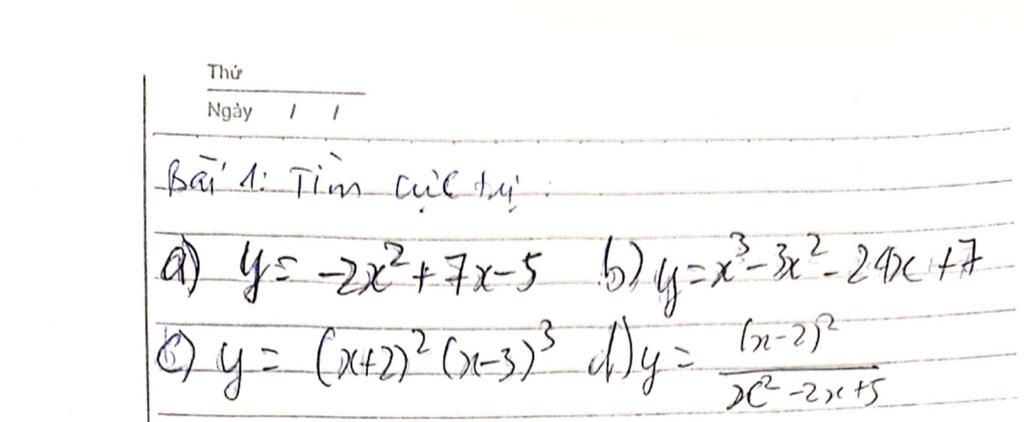 Thứ
Ngày / /
Bài 1: Tìm cực trị:
a) y = -2x² + 7x - 5 b) y = x³ - 3x² - 24x + 7
c) y = (x+2)² (x-3)³ d) y = (x-2)² / x² - 2x + 5